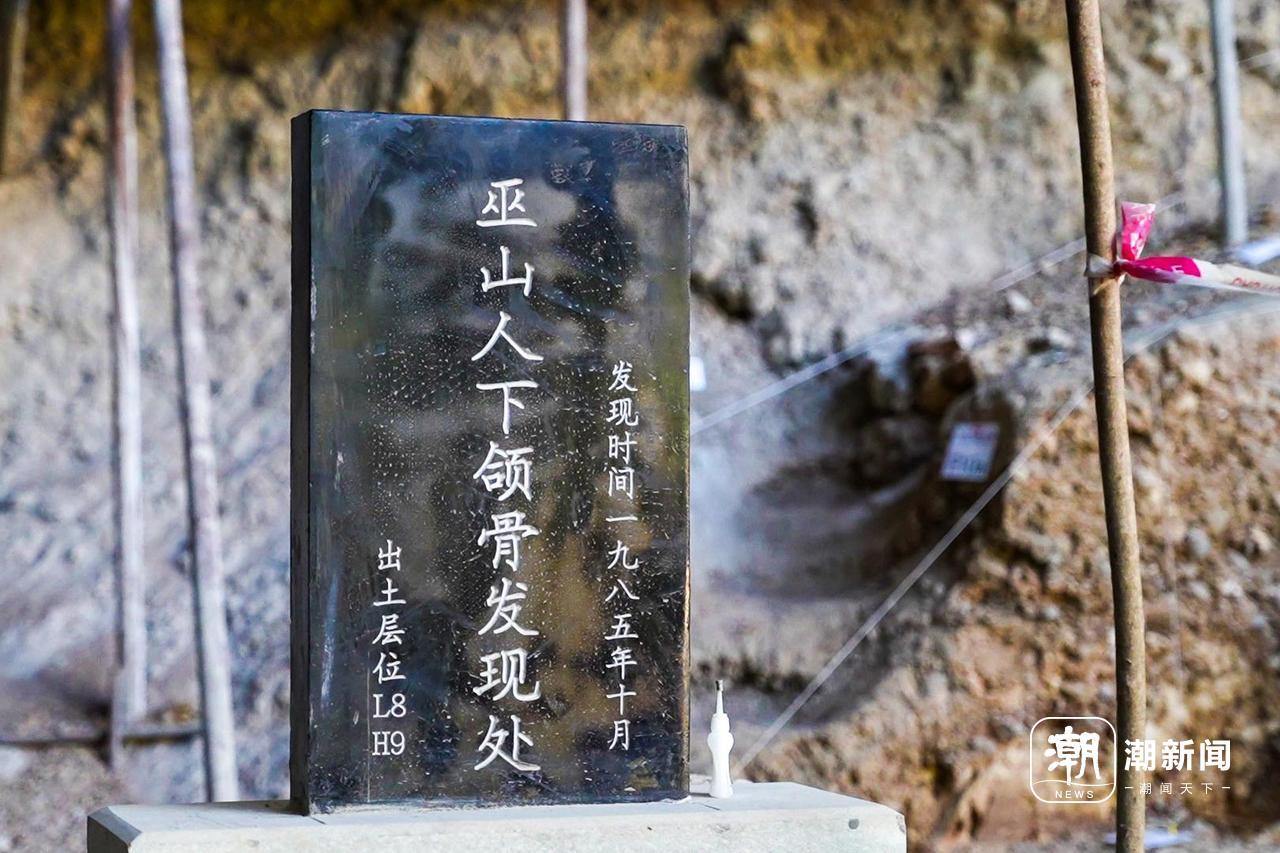 发现时间一九八五年十月
巫山人下颌骨发现处
出土层位L8
H9
潮
NEWS
潮新闻
潮闻天下